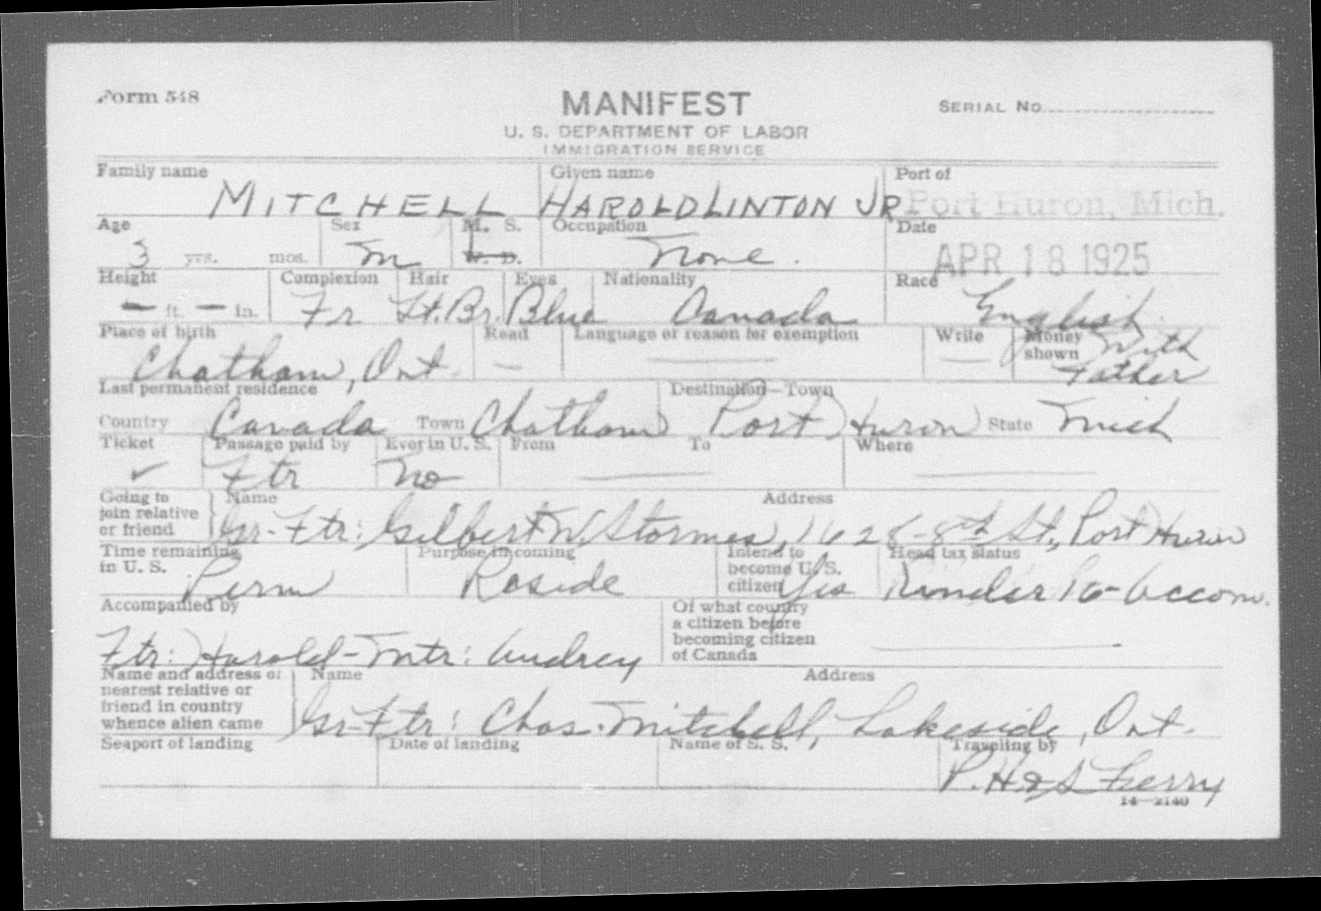 Form 548
MANIFEST
SERIAL No.
U. S. DEPARTMENT OF LABOR
IMMIGRATION SERVICE
Family name Given name Port of
MITCHELL HAROLD LINTON JR Port Huron, Mich.
Age Sex M. S. Occupation Date
3 yrs. mos. m W. D. None. APR 18 1925
Height Complexion Hair Eyes Nationality Race
— ft. — in. Fr Lt. Br. Blue Canada English
Place of birth Read Language or reason for exemption Write Money shown
Chatham, Ont — — — With Father
Last permanent residence Destination—Town
Country Canada Town Chatham Port Huron State Mich
Ticket Passage paid by Ever in U. S. From To Where
✓ Ftr No — —
Going to join relative or friend Name Address
Gr-Ftr: Gilbert W. Stormes, 1628-8th St., Port Huron
Time remaining in U. S. Purpose in coming Intend to become U. S. citizen Head tax status
Perm Reside Yes Under 16-Accom.
Accompanied by Of what country a citizen before becoming citizen of Canada
Ftr: Harold-Mtr: Audrey —
Name and address of nearest relative or friend in country whence alien came Name Address
Gr-Ftr: Chas. Mitchell, Lakeside, Ont.
Seaport of landing Date of landing Name of S. S. Traveling by
P.H&S Ferry
14—2140